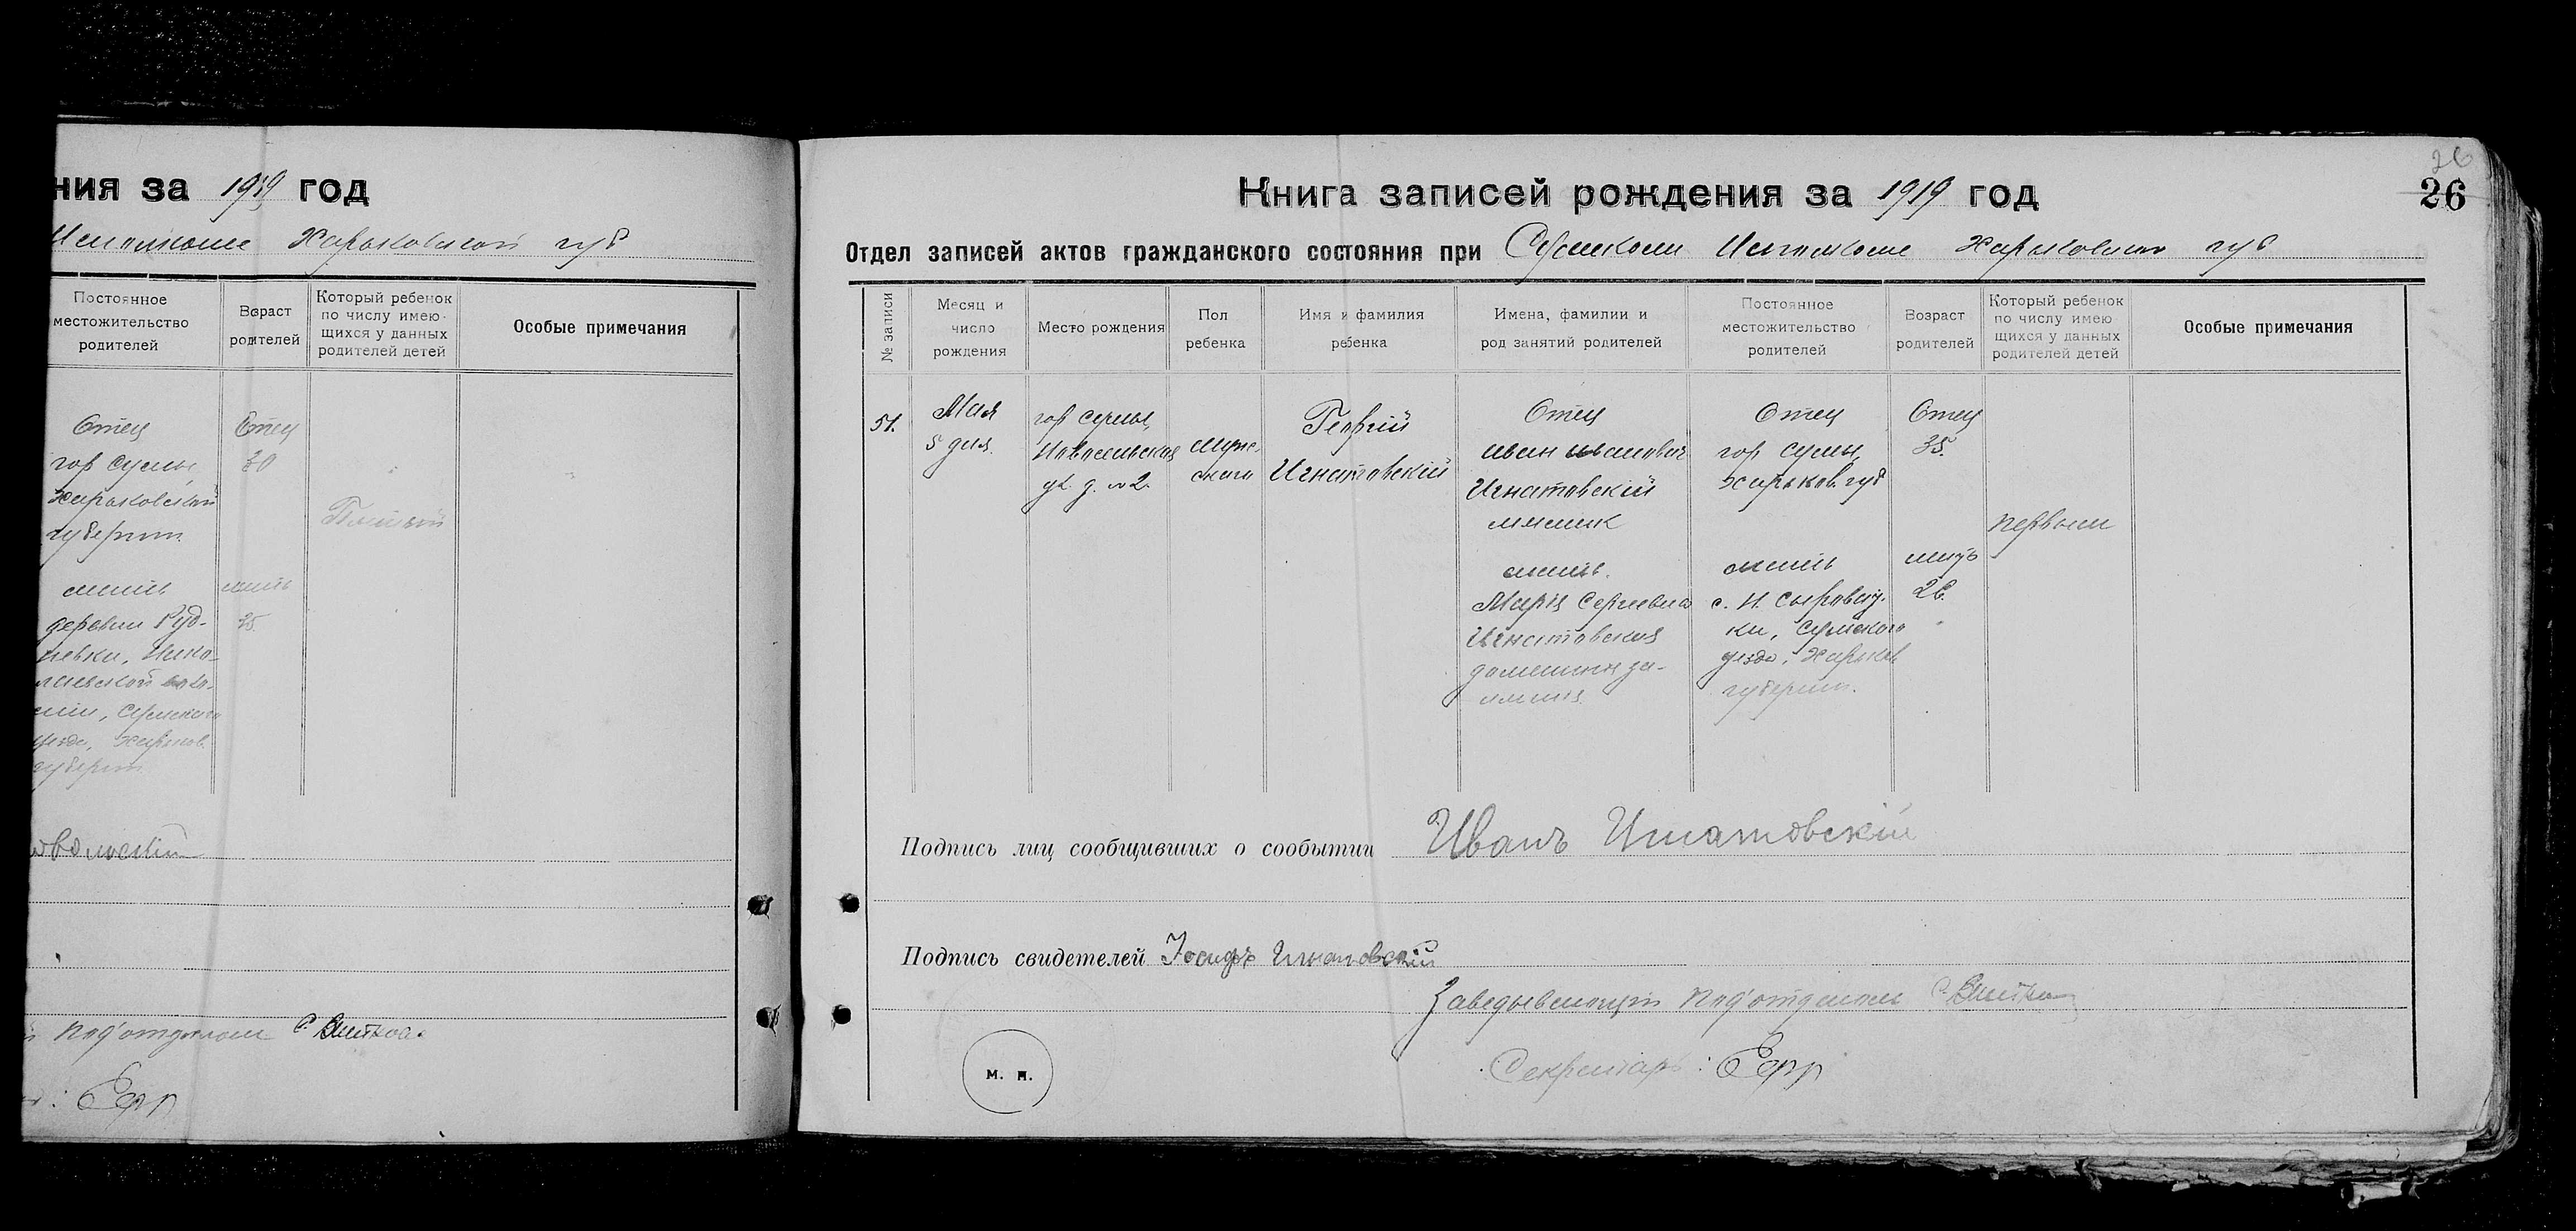 ния за 1919 год
Исполкоме Харьковской губ
Постоянное
местожительство
родителей
Возраст
родителей
Который ребенок
по числу имею-
щихся у данных
родителей детей
Особые примечания
Отец
гор Сумы,
Харьковской
губернии
мать
деревни
Сумского
уезда, Харьков.
губерни
Отец
30
мать
25.
под'отделом
: Ефр
26
26
Книга записей рождения за 1919 год
Отдел записей актов гражданского состояния при Сумском Исполкоме Харьковской губ
№ записи
Месяц и
число
рождения
Место рождения
Пол
ребенка
Имя и фамилия
ребенка
Имена, фамилии и
род занятий родителей
Постоянное
местожительство
родителей
Возраст
родителей
Который ребенок
по числу имею
щихся у данных
родителей детей
Особые примечания
51.
Мая
5 дня.
гор Сумы,
Новосельская
ул. д. № 2.
муж-
ского
Георгій
Игнатовскій
Отец
Иван Иванович
Игнатовскій
мать.
Мария Сергиевна
Игнатовская
домашния за-
нятия
Отец
гор Сумы,
Харьков. губ
мать
с. Н. Сыроват-
ки, Сумского
уезда, Харьков
губернии.
Отец
35.
мать
26.
первый
Подпись лиц сообщивших о сообытии Иванъ Игнатовскій
Подпись свидетелей Іосифъ Игнатовскій
Заведывающій под'отделом
Секретарь: Ефр
м. п.